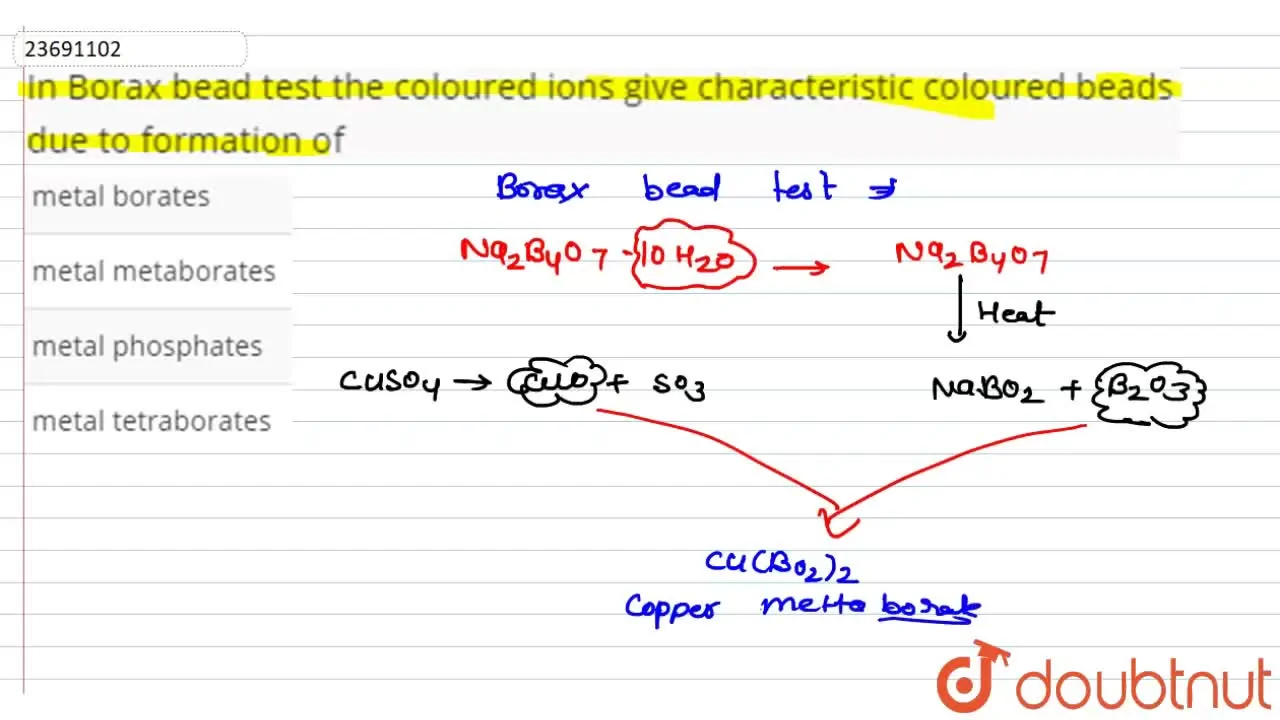 23691102
In Borax bead test the coloured ions give characteristic coloured beads
due to formation of
metal borates
metal metaborates
metal phosphates
metal tetraborates
Borax bead test ⇒
Na2B4O7·10H2O → Na2B4O7
Heat
CuSO4 → CuO + SO3
NaBO2 + B2O3
Cu(BO2)2
Copper metta borate
doubtnut